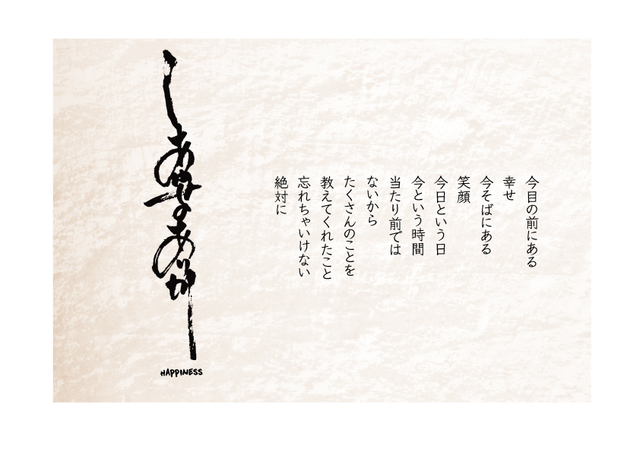 今目の前にある
幸せ
今そばにある
笑顔
今日という日
今という時間
当たり前では
ないから
たくさんのことを
教えてくれたこと
忘れちゃいけない
絶対に
しあわせのあかし
HAPPINESS